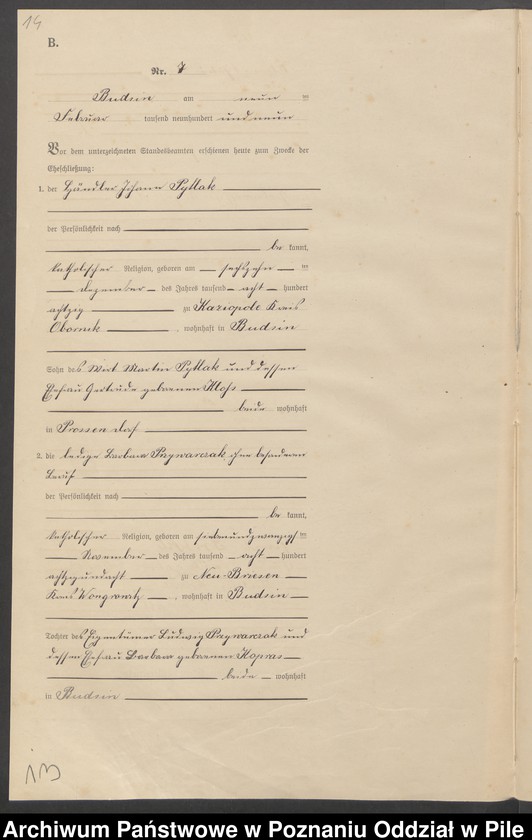 14
B.
Nr. 7
Budsin am neun ten
Februar tausend neunhundert und neun
Vor dem unterzeichneten Standesbeamten erschienen heute zum Zwecke der
Eheschließung:
1. der Händler Johann Pytlak
der Persönlichkeit nach
be kannt,
katholischer Religion, geboren am sechszehn ten
Dezember des Jahres tausend acht hundert
achtzig zu Kaziopole Kreis
Obornik, wohnhaft in Budsin
Sohn des Wirt Martin Pytlak und dessen
Ehefrau Gertrude geborenen
beide wohnhaft
in
2. die ledige Barbara Przywarczak, ohne besonderen
Beruf
der Persönlichkeit nach
be kannt,
katholischer Religion, geboren am siebenundzwanzigs ten
November des Jahres tausend acht hundert
achtzigundacht zu Neu-Briesen
Kreis Wongrowitz, wohnhaft in Budsin
Tochter des Eigentümer Ludwig Przywarczak und
dessen Ehefrau Barbara geborenen
beide wohnhaft
in Budsin
113
Archiwum Państwowe w Poznaniu Oddział w Pile